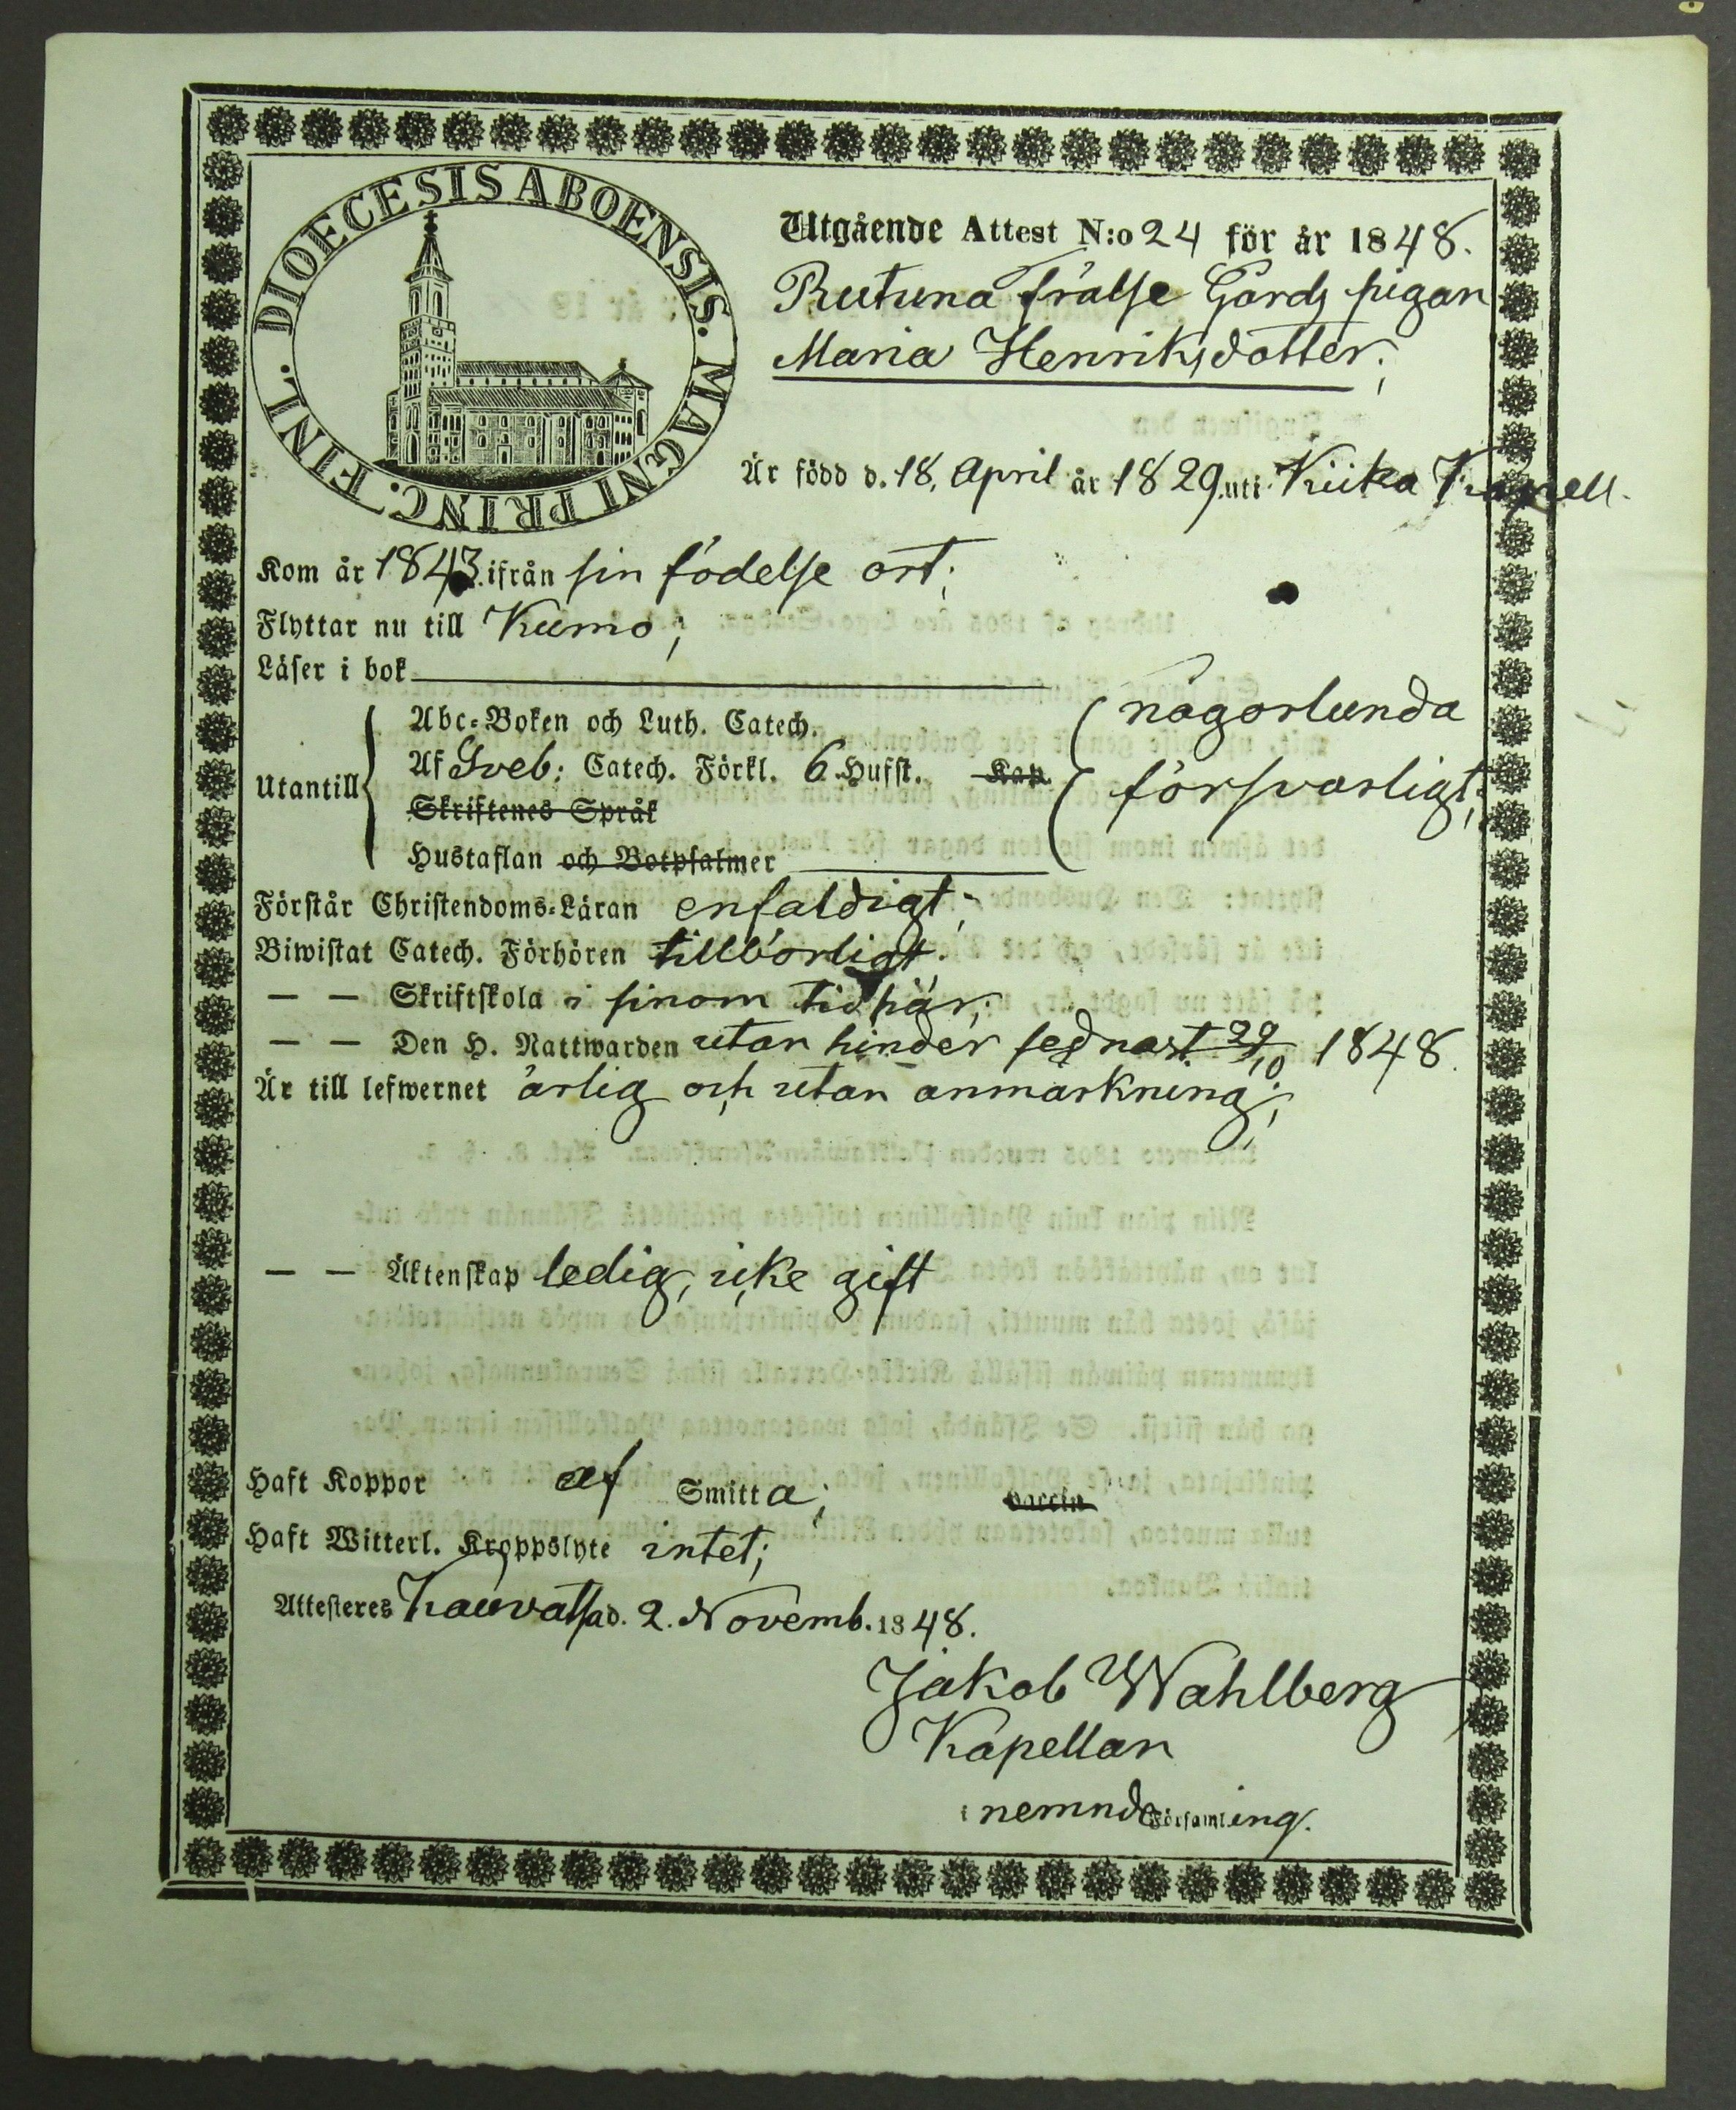 DIOECESIS ABOENSIS. MAGNI PRINC. FINL.
Utgående Attest N:o 24 för år 1848.
Rutuna frälse Gårds pigan
Maria Henriksdotter;
Är född d. 18. April år 1829 uti Kiika Kapell.
Kom år 1843. ifrån sin födelse ort;
Flyttar nu till Kumo;
Läser i bok
Abc-Boken och Luth. Catech.
någorlunda
Utantill
Af Sveb: Catech. Förkl. 6 Hufst. Kap
försvarligt;
Skriftenes Språk
Hustaflan och Botpsalmer
Förstår Christendoms-Läran enfaldigt;
Biwistat Catech. Förhören tillbörligt.
— — Skriftskola i sinom tid här;
— — Den H. Nattwarden utan hinder sednast 29/10 1848.
Är till lefwernet ärlig och utan anmärkning;
— — Äktenskap ledig, icke gift
Haft Koppor af Smitta; vaccin
Haft Witterl. Kroppslyte intet;
Attesteres Kauvatsa d. 2. Novemb. 1848.
Jakob Wahlberg
Kapellan
i nemnde Församling.